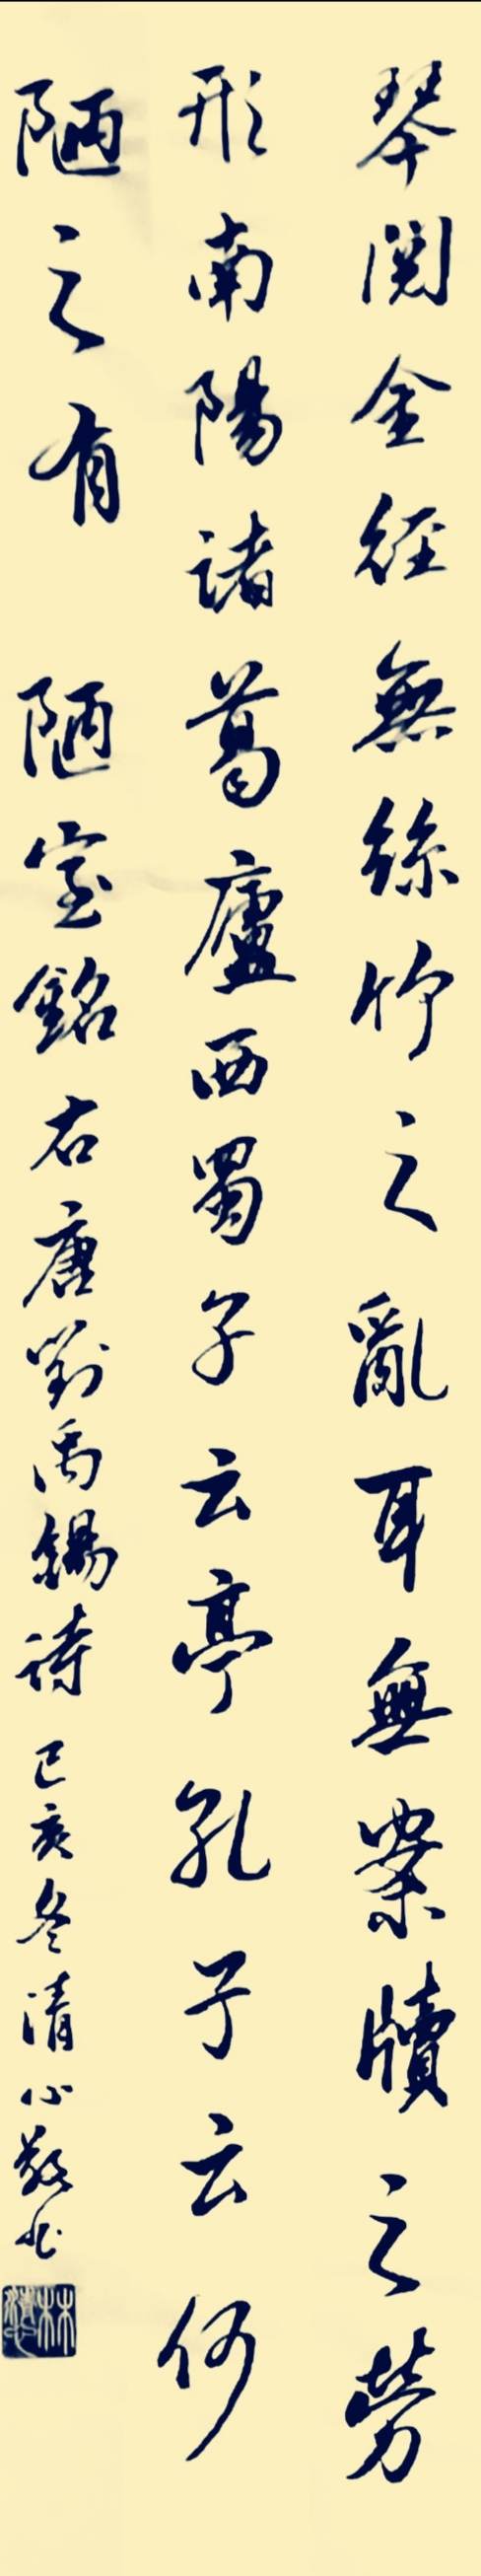 琴閱金經無絲竹之亂耳無案牘之勞
形南陽諸葛廬西蜀子云亭孔子云何
陋之有 陋室銘右唐劉禹錫詩 己亥冬清心敬書